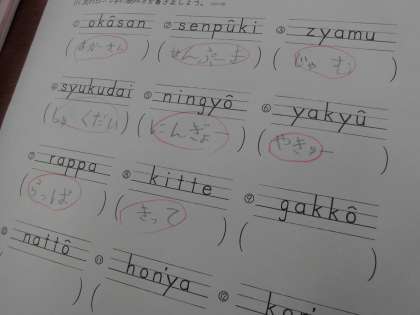 ① okâsan ② senpûki ③ zyamu
(おかさん) (せんぷーき) (じゃむ)
④ syukudai ⑤ ningyô ⑥ yakyû
(しゅくだい) (にんぎょ) (やきゅー)
⑦ rappa ⑧ kitte ⑨ gakkô
(らっぱ) (きって) ( )
⑩ nattô ⑪ hon'ya ⑫